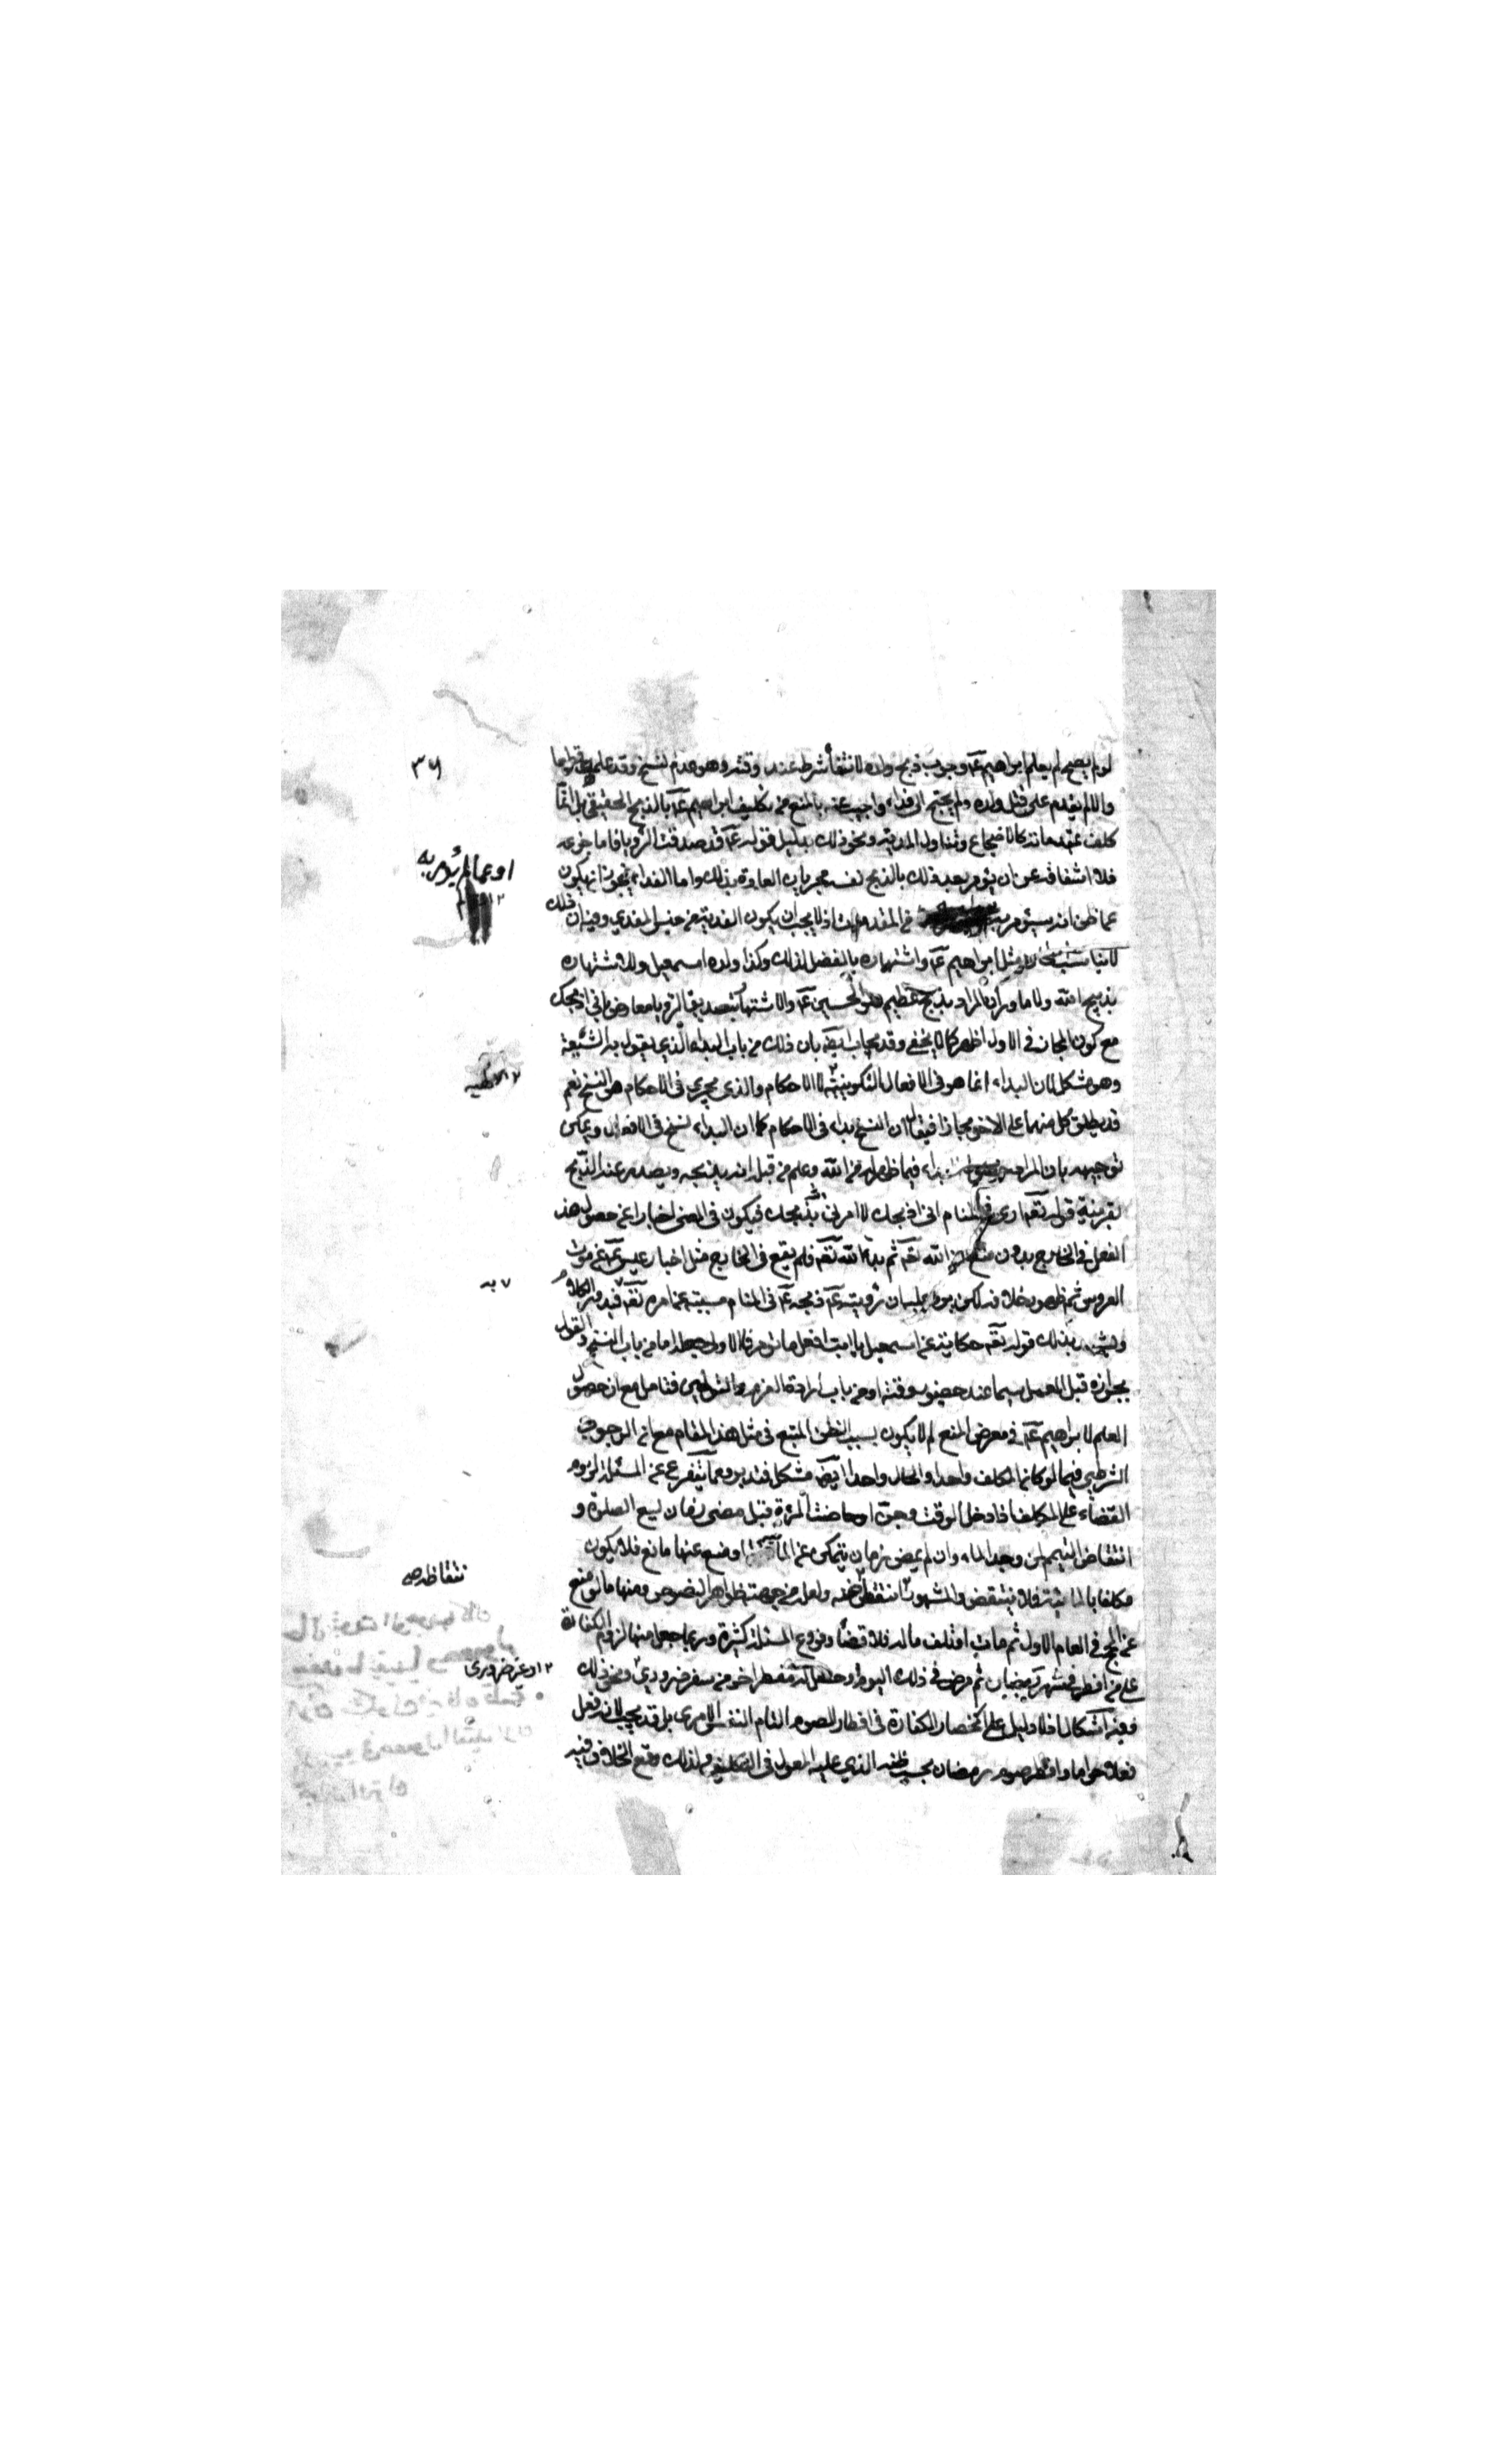 لو لم يصح لم يعلم ابراهيم عم وجوب ذبح ولده لانتفاء شرطه عند وقته وهو عدم النسخ وقد علمه قطعا
والا لم يقدم على قتل ولده ولم يحتج الى فداء واجيب عنه بالمنع من تكليف ابراهيم عم بالذبح الحقيقي بل انما
كلف بمقدماته كالاضجاع وتناول المدية ونحو ذلك بدليل قوله عم قد صدقت الرؤيا فاما جزعه
فلاشفاقه عن ان يؤمر بعد ذلك بالذبح نفسه لجريان العادة بذلك واما الفداء فيجوز ان يكون
عما ظن انه سيؤمر به من المقدمات اذ لا يجب ان يكون الفدية من جنس المفدي وفيه ان ذلك
لا يناسب مثل ابراهيم عم واشتهاره بالفضل لذلك وكذا ولده اسمعيل والاشتهاره
بذبيح الله ولا ما ورد ان المراد بذبح عظيم هو الحسين عم والاشتهار بتصديق الرؤيا معارض باني اذبحك
مع كون المجاز في الاول اظهر كما لا يخفى وقد يجاب ايضا بان ذلك من باب البداء الذي يقول به الشيعة
وهو مشكل لان البداء انما هو في الافعال التكوينية لا الاحكام والذي يجري في الاحكام هو النسخ نعم
قد يطلق كل منهما على الاخر مجازا فيقال ان النسخ بداء في الاحكام كما ان البداء نسخ في الافعال ويمكن
توجيهه بان المراد بداء فيما ظهر له من الله وعلم من قبله انه يذبحه ويصدر عنه الذبح
بقرينة قوله تعم ارى في المنام اني اذبحك لا امرني بذبحك فيكون في المعنى اخبارا عن حصول هذا
الفعل في الخارج بدون منع من الله تعم ثم بدا لله تعم فلم يقع في الخارج مثل اخبار عيسى عم عن موت
العروس ثم ظهور خلافه لكن يرد عليه ان رؤيته عم ذبحه عم في المنام مسببة عما امره تعم فيدور الكلام
ويشهد بذلك قوله تعم حكاية عن اسمعيل يا ابت افعل ما تؤمر فالاولى جعله اما من باب النسخ والقول
بجوازه قبل العمل سيما عند حضور وقته او من باب ارادة العزم والتوطين فتامل مع ان حصول
العلم لابراهيم عم في معرض المنع لم لا يكون بسبب الظن المتبع في مثل هذا المقام مع ان الوجوب
الشرطي فيما لو كان المكلف واحدا والحال واحدا ايضا مشكل فتدبر ومما يتفرع عن المسئلة لزوم
القضاء على المكلف اذا دخل الوقت وجن او حاضت المرئة قبل مضى زمان يسع الصلوة و
انتقاض التيمم لمن وجد الماء وان لم يمض زمان يتمكن عن المائية او منع عنها مانع فلا يكون
مكلفا بالمائية فلا ينتقض والمشهور انتقاضه ولعله من جهة ظواهر النصوص ومنها ما لو منع
عن الحج في العام الاول ثم مات او تلف ماله فلا قضاء وفروع المسئلة كثيرة وربما جعل منها لزوم الكفارة
على من افطر في شهر رمضان ثم مرض في ذلك اليوم او حصل له مفطر اخر من سفر ضروري ونحو ذلك
وفيه اشكال اذ لا دليل على انحصار الكفارة في افطار الصوم التام النفس الامري بل قد يجب لانه فعل
فعلا حراما وافطر صوم رمضان بحسب ظنه الذي عليه المعول في التكليف ولذلك وقع الخلاف فيه
٣٦
او عما لم يؤمر به
٧ به
انتقاضه
او غير ضروري